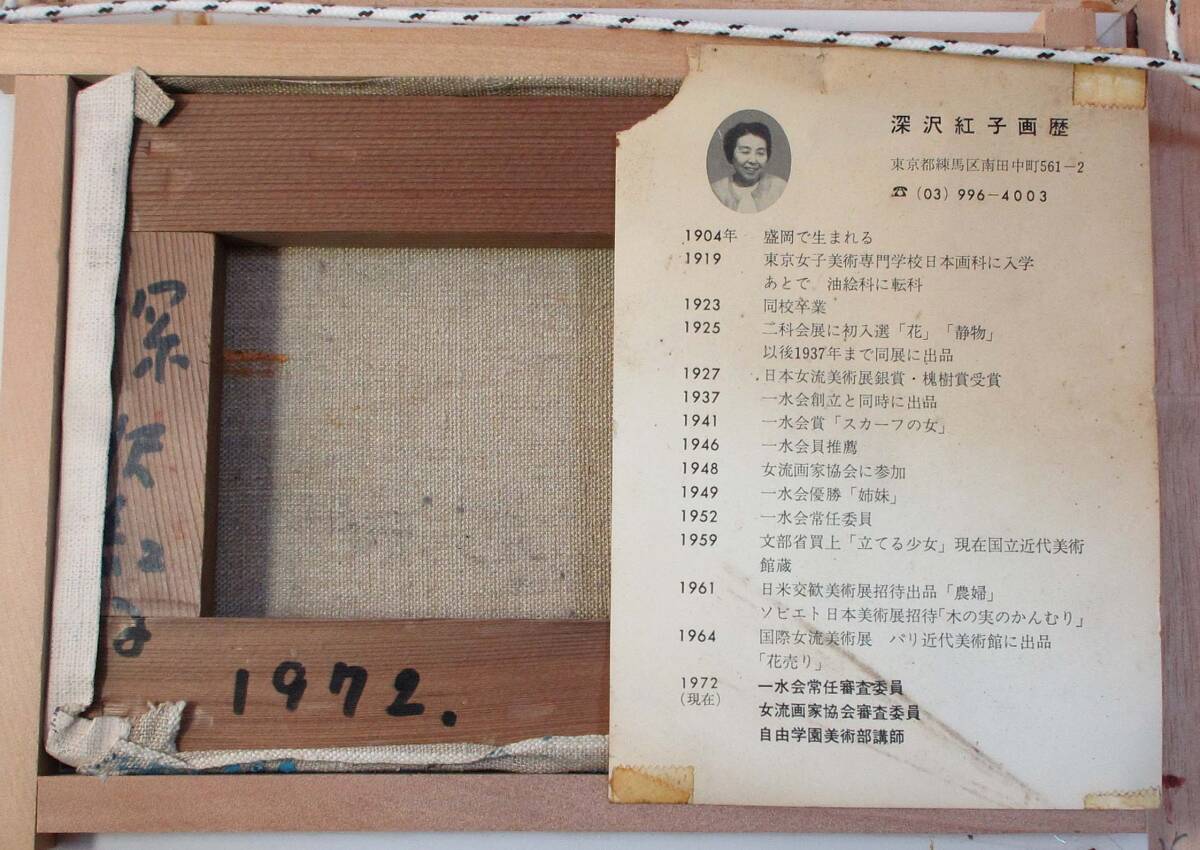 深沢紅子
1972.
深沢紅子画歴
東京都練馬区南田中町561-2
☎ (03) 996-4003
1904年 盛岡で生まれる
1919 東京女子美術専門学校日本画科に入学
あとで 油絵科に転科
1923 同校卒業
1925 二科会展に初入選「花」「静物」
以後1937年まで同展に出品
1927 日本女流美術展銀賞・槐樹賞受賞
1937 一水会創立と同時に出品
1941 一水会賞「スカーフの女」
1946 一水会員推薦
1948 女流画家協会に参加
1949 一水会優勝「姉妹」
1952 一水会常任委員
1959 文部省買上「立てる少女」現在国立近代美術
館蔵
1961 日米交歓美術展招待出品「農婦」
ソビエト日本美術展招待「木の実のかんむり」
1964 国際女流美術展 パリ近代美術館に出品
「花売り」
1972 一水会常任審査委員
(現在) 女流画家協会審査委員
自由学園美術部講師